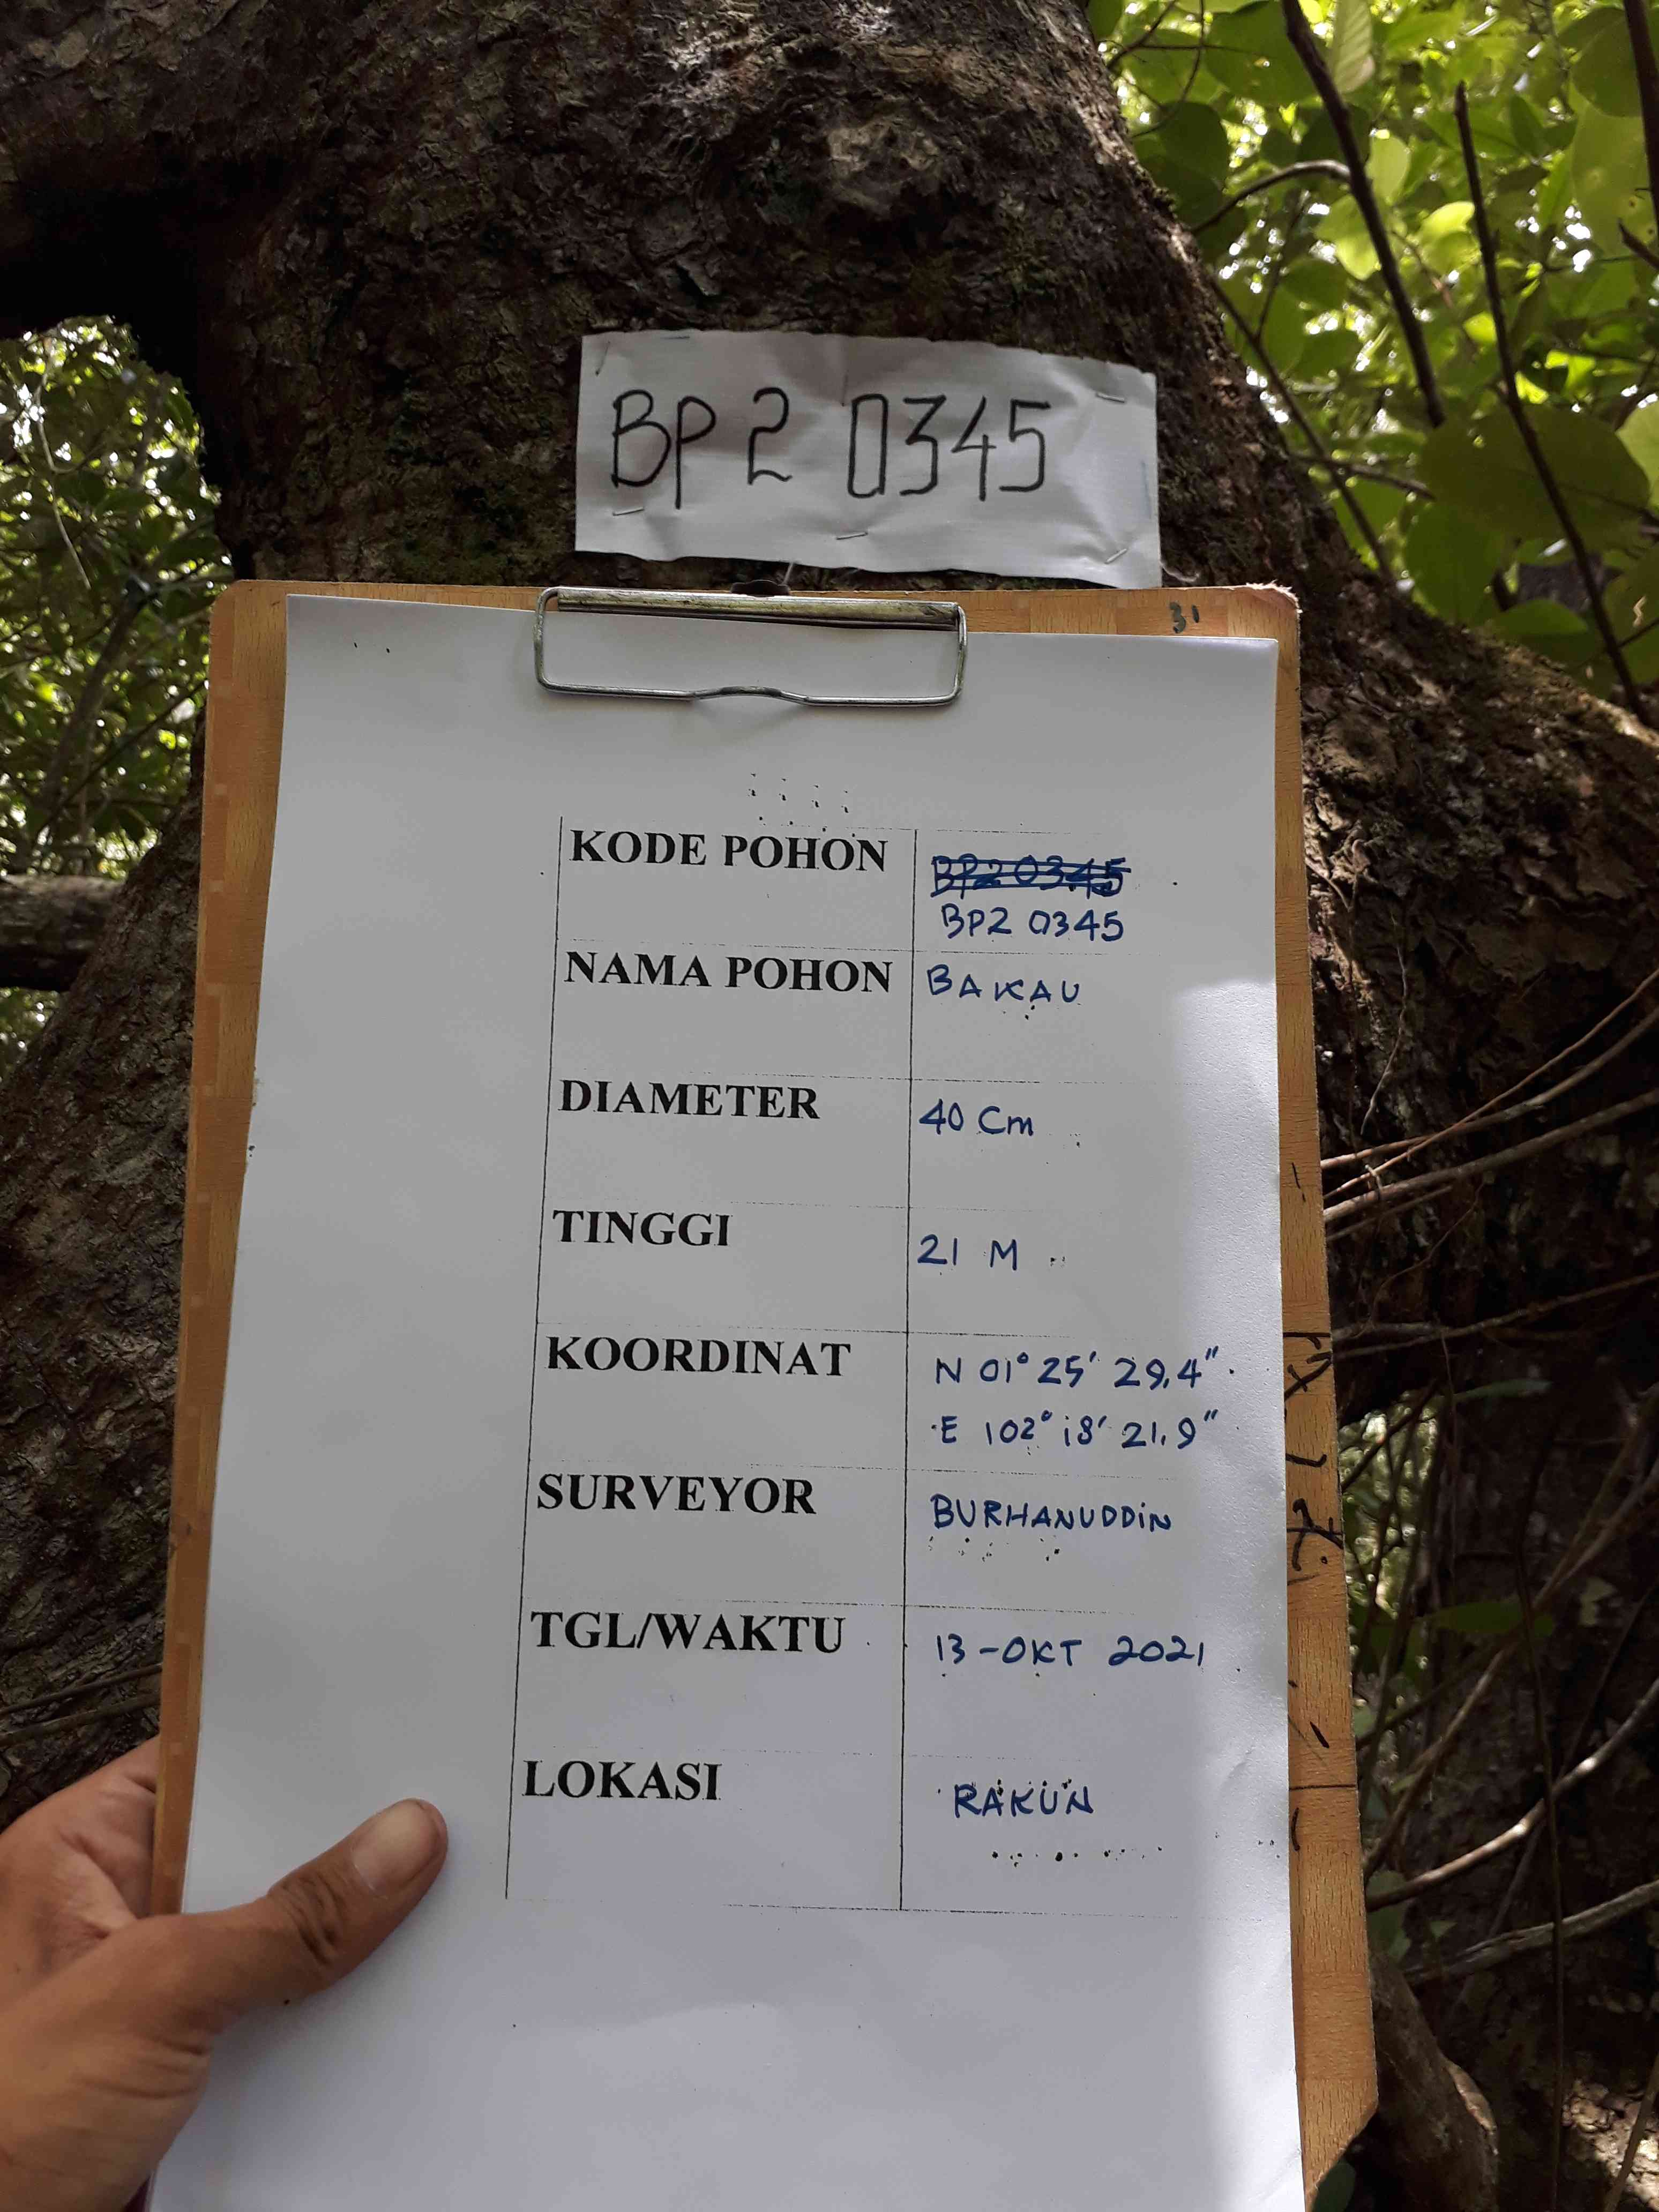 BP 2 0345
31
KODE POHON BP2 0345
BP2 0345
NAMA POHON BAKAU
DIAMETER 40 Cm
TINGGI 21 M
KOORDINAT N 01° 25' 29,4"
E 102° 18' 21,9"
SURVEYOR BURHANUDDIN
TGL/WAKTU 13-OKT 2021
LOKASI RAKUN